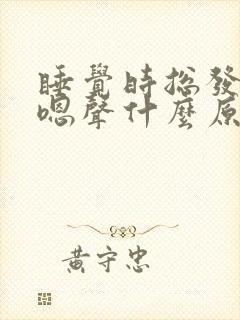 睡覺時總發
嗯聲什麼原
黃守忠